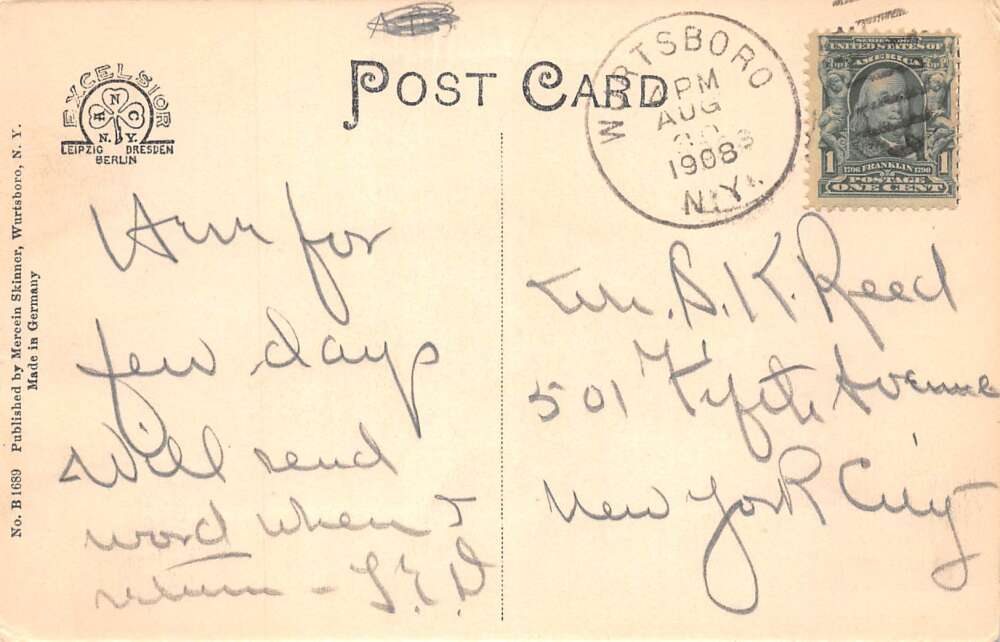 POST CARD
EXCELSIOR
H N C
N. Y.
LEIPZIG DRESDEN
BERLIN
No. B 1689 Published by Mercein Skinner, Wurtsboro, N. Y.
Made in Germany
WURTSBORO
PM
AUG
1908
N.Y.
SERIES 1902
UNITED STATES OF
AMERICA
1 1706 FRANKLIN 1790 1
POSTAGE
ONE CENT
Here for
few days
Will send
word when I
return -
S. K. Reed
501 Fifth Avenue
New York City